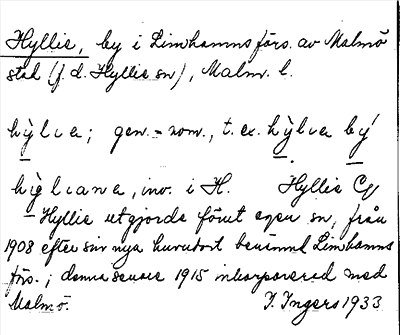 Hyllie, by i Limhamns förs. av Malmö
stad (f. d. Hyllie sn), Malm. l.
hỳlıa; gen. = nom., t. ex. hỳlıa bý
hỳlıana, inv. i H. Hyllie Cg
Hyllie utgjorde förut egen sn, från
1908 efter sin nya huvudort benämnd Limhamns
förs.; denna senare 1915 inkorporerad med
Malmö. I. Ingers 1933